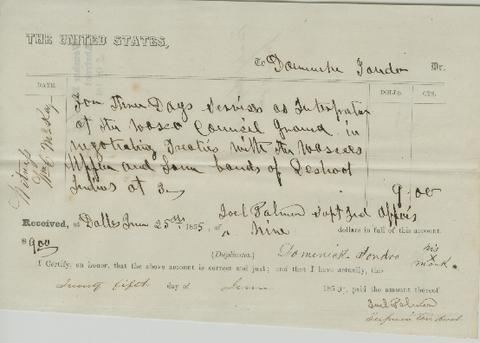 THE UNITED STATES,
To Dominike Jondro Dr.
DATE. DOLLS. CTS.
For Three Days Services as Interpreter
at the Wasco Council Ground in
negotiating Treaties with the Wascoes
Upper and Lower bands of Deshoot
Indians at 3 9.00
Witness
Wm C McKay
Received, at Dalles June 25th 1855, of Joel Palmer Supt Ind Affairs
$9.00 Nine dollars in full of this account.
(Duplicates.) Dominick Jondro his X mark.
I Certify, on honor, that the above account is correct and just; and that I have actually, this
Twenty fifth day of June 1855, paid the amount thereof
Joel Palmer
Superintendent